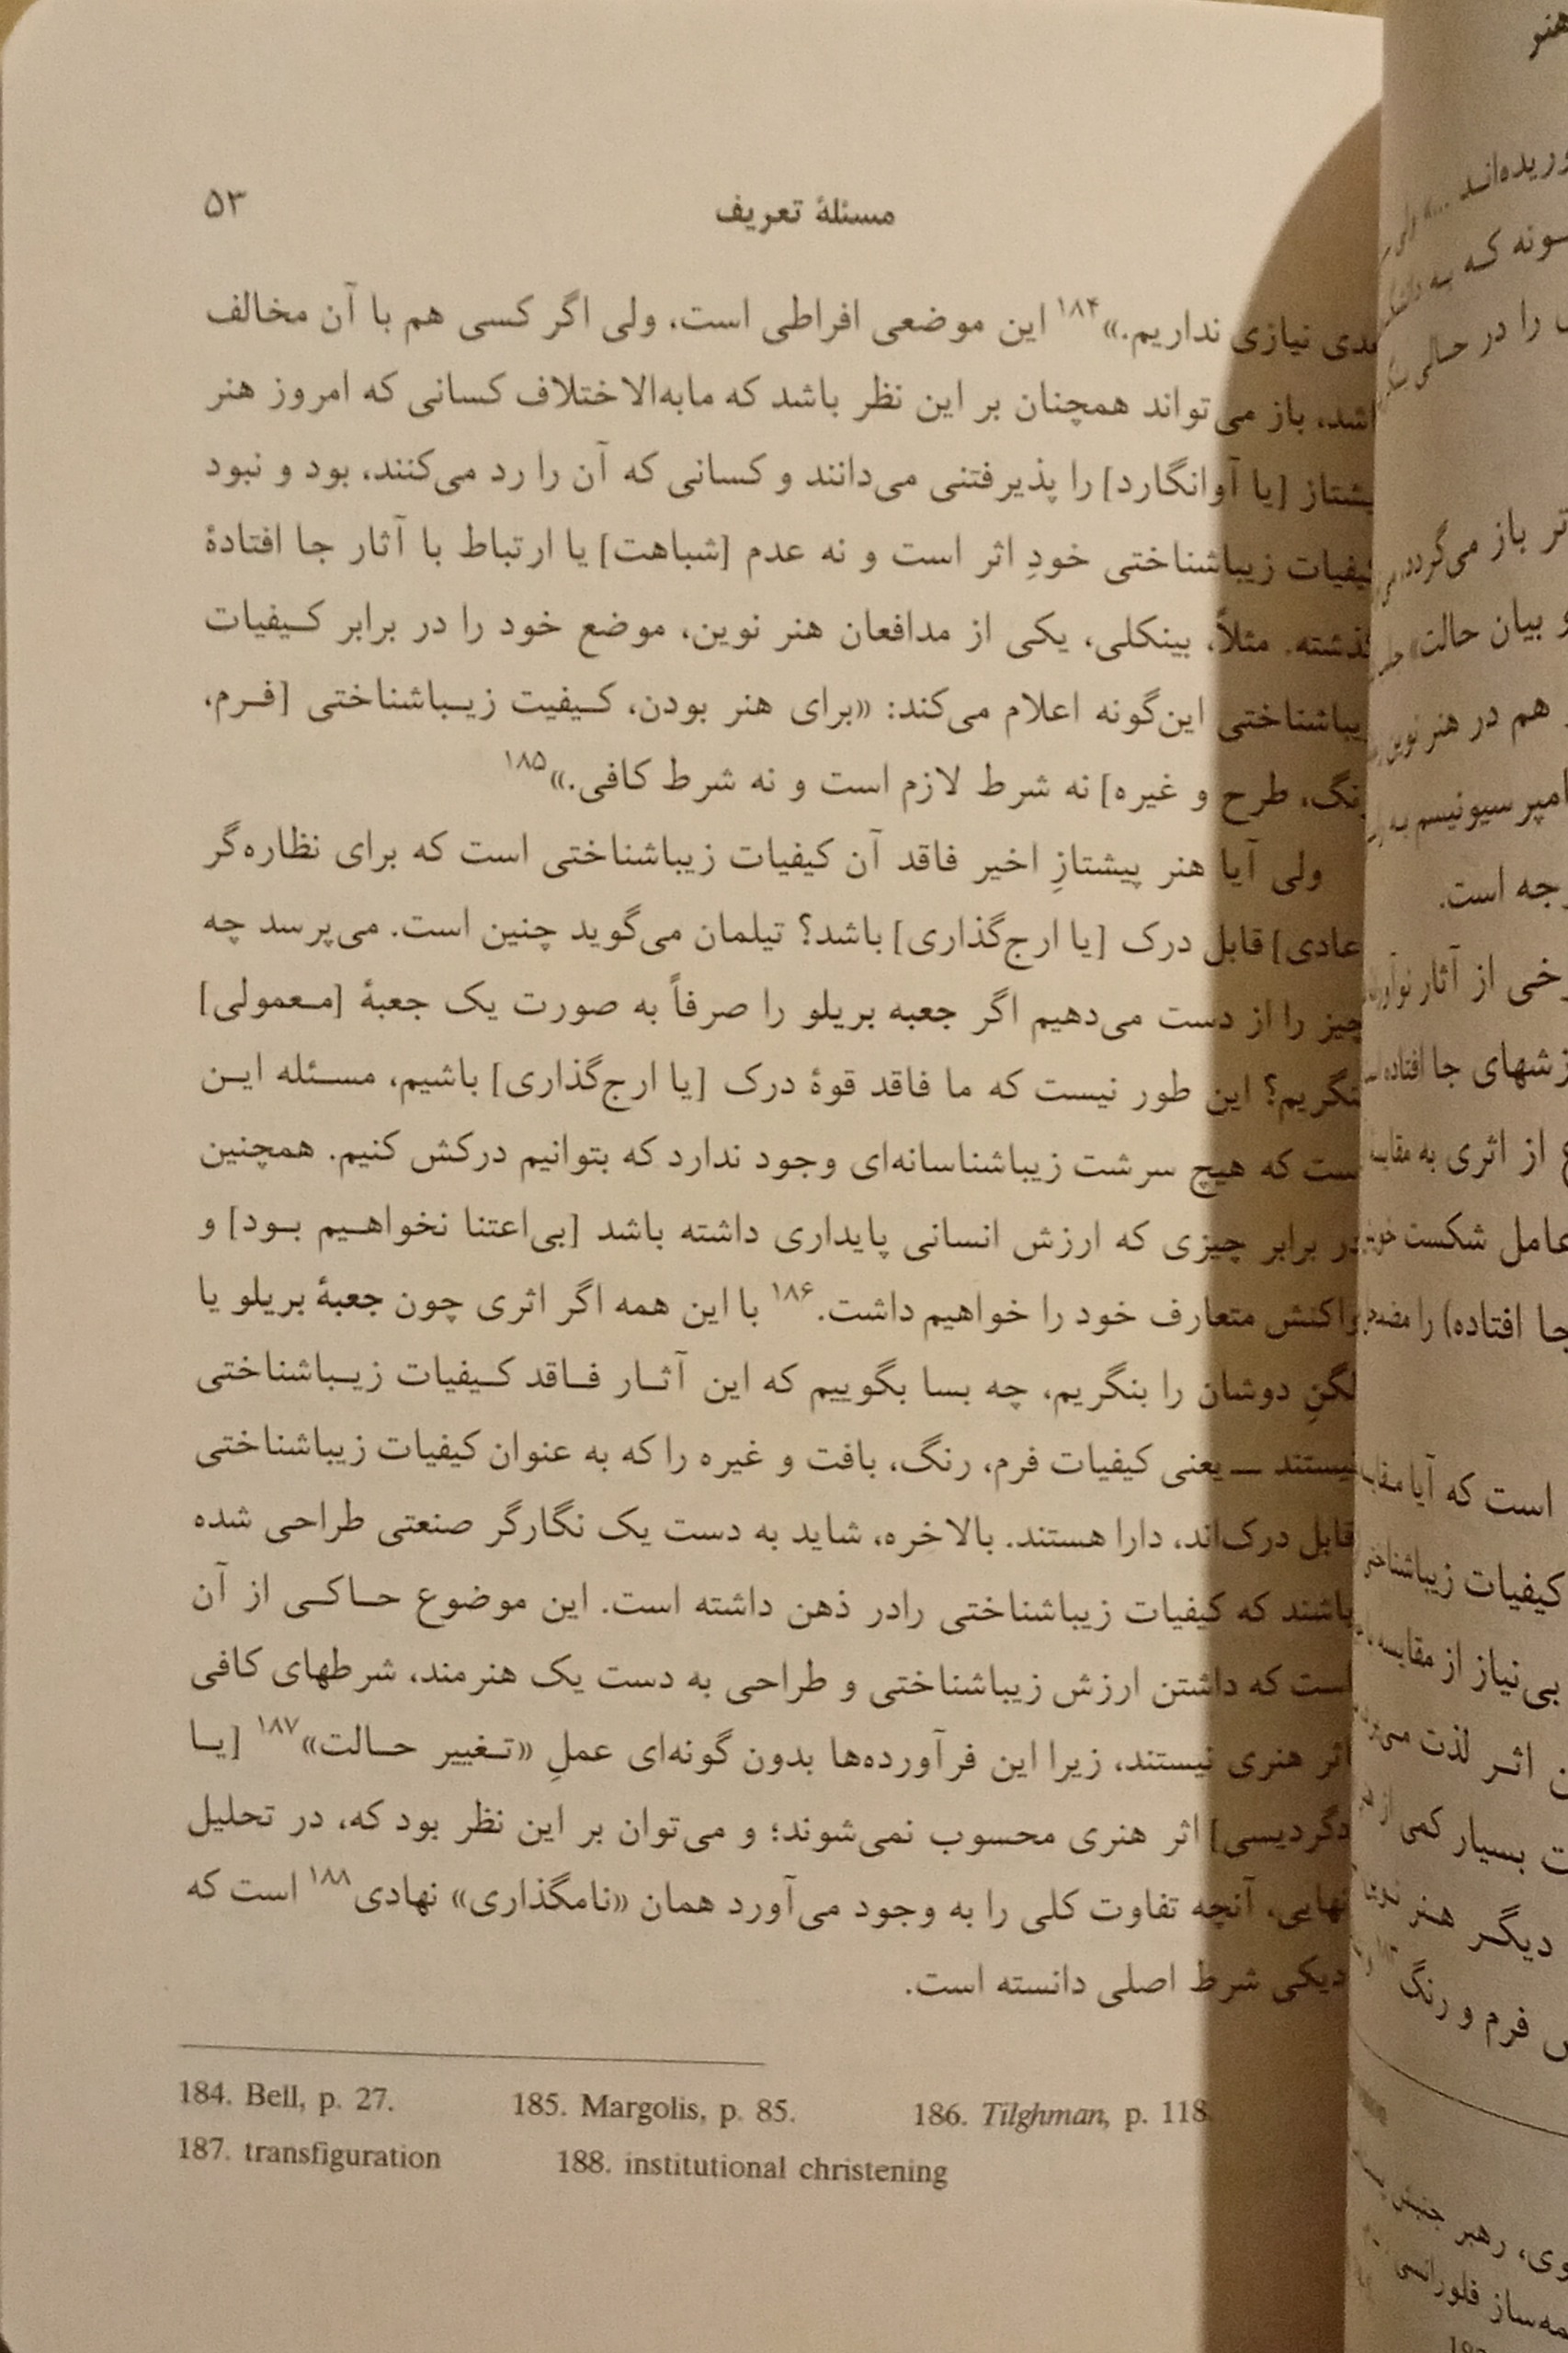 مسئلهٔ تعریف ۵۳
نیازی نداریم.»۱۸۴ این موضعی افراطی است، ولی اگر کسی هم با آن مخالف
باز می‌تواند همچنان بر این نظر باشد که مابه‌الاختلاف کسانی که امروز هنر
[یا آوانگارد] را پذیرفتنی می‌دانند و کسانی که آن را رد می‌کنند، بود و نبود
کیفیات زیباشناختی خودِ اثر است و نه عدم [شباهت] یا ارتباط با آثار جا افتادهٔ
گذشته. مثلاً، بینکلی، یکی از مدافعان هنر نوین، موضع خود را در برابر کیفیات
زیباشناختی این‌گونه اعلام می‌کند: «برای هنر بودن، کیفیت زیباشناختی [فرم،
رنگ، طرح و غیره] نه شرط لازم است و نه شرط کافی.»۱۸۵
ولی آیا هنر پیشتازِ اخیر فاقد آن کیفیات زیباشناختی است که برای نظاره‌گر
[عادی] قابل درک [یا ارج‌گذاری] باشد؟ تیلمان می‌گوید چنین است. می‌پرسد چه
چیز را از دست می‌دهیم اگر جعبه بریلو را صرفاً به صورت یک جعبهٔ [معمولی]
بنگریم؟ این طور نیست که ما فاقد قوهٔ درک [یا ارج‌گذاری] باشیم، مسئله این
است که هیچ سرشت زیباشناسانه‌ای وجود ندارد که بتوانیم درکش کنیم. همچنین
در برابر چیزی که ارزش انسانی پایداری داشته باشد [بی‌اعتنا نخواهیم بود] و
واکنش متعارف خود را خواهیم داشت.۱۸۶ با این همه اگر اثری چون جعبهٔ بریلو یا
لگنِ دوشان را بنگریم، چه بسا بگوییم که این آثار فاقد کیفیات زیباشناختی
نیستند — یعنی کیفیات فرم، رنگ، بافت و غیره را که به عنوان کیفیات زیباشناختی
قابل درک‌اند، دارا هستند. بالاخره، شاید به دست یک نگارگر صنعتی طراحی شده
باشند که کیفیات زیباشناختی رادر ذهن داشته است. این موضوع حاکی از آن
است که داشتن ارزش زیباشناختی و طراحی به دست یک هنرمند، شرطهای کافی
اثر هنری نیستند، زیرا این فرآورده‌ها بدون گونه‌ای عملِ «تغییر حالت»۱۸۷ [یا
دگردیسی] اثر هنری محسوب نمی‌شوند؛ و می‌توان بر این نظر بود که، در تحلیل
نهایی، آنچه تفاوت کلی را به وجود می‌آورد همان «نامگذاری» نهادی۱۸۸ است که
دیکی شرط اصلی دانسته است.
184. Bell, p. 27. 185. Margolis, p. 85. 186. Tilghman, p. 118.
187. transfiguration 188. institutional christening
هنر
را در حالی
تر باز می‌گردد
و بیان حالت
هم در هنر نوین
امپرسیونیسم به
است.
از آثار
جا افتاده
از اثری به مقایسه
عامل شکست
جا افتاده) را
است که آیا
کیفیات زیباشناختی
بی‌نیاز از مقایسه
اثر لذت
بسیار کمی از
دیگر هنر
فرم و رنگ
رهبر جنبش
فلورانسی